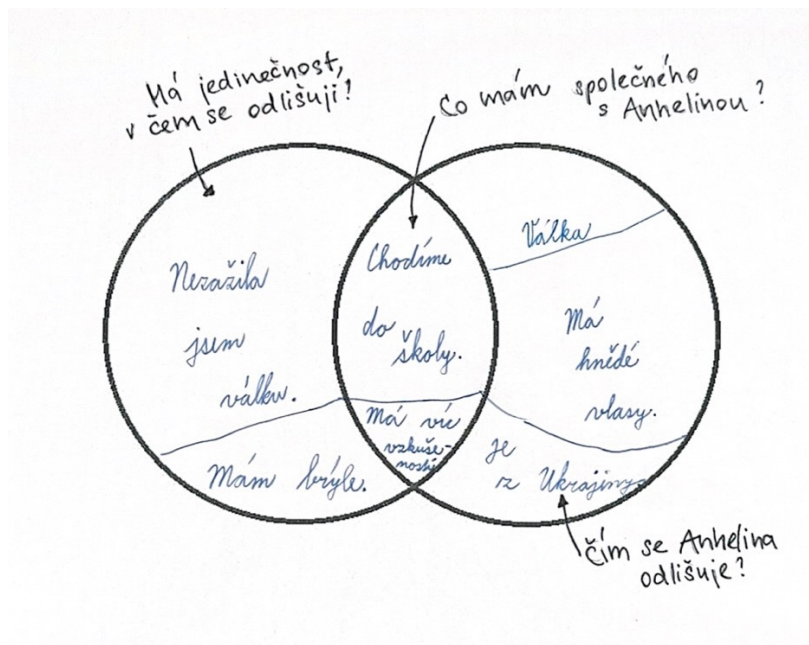 Má jedinečnost,
v čem se odlišuji?
Co mám společného
s Anhelinou?
Nezažila
jsem
válku.
Mám brýle.
Chodíme
do
školy.
Má víc
vzkuše-
ností
Válka
Má
hnědé
vlasy.
je
z Ukrajiny
Čím se Anhelina
odlišuje?